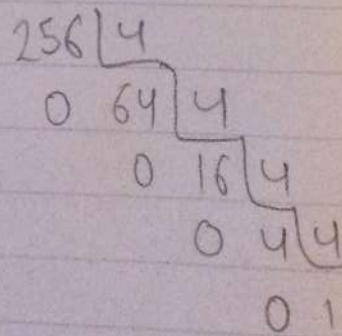 256 4
0 64 4
0 16 4
0 4 4
0 1